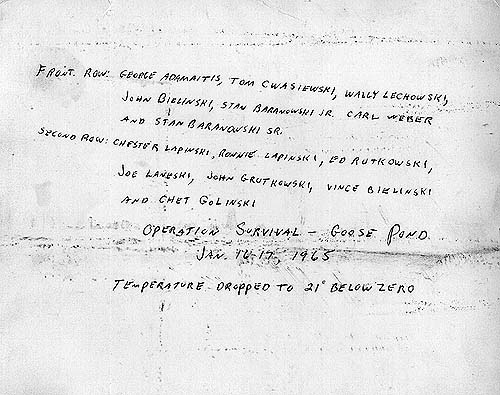 FRONT ROW: GEORGE ADAMAITIS, TOM CWASIEWSKI, WALLY LECHOWSKI,
JOHN BIELINSKI, STAN BARANOWSKI JR. CARL WEBER
AND STAN BARANOWSKI SR.
SECOND ROW: CHESTER LAPINSKI, RONNIE LAPINSKI, ED RUTKOWSKI,
JOE LANESKI, JOHN GRUTKOWSKI, VINCE BIELINSKI
AND CHET GOLINSKI
OPERATION SURVIVAL - GOOSE POND
JAN. 16-17, 1965
TEMPERATURE DROPPED TO 21° BELOW ZERO